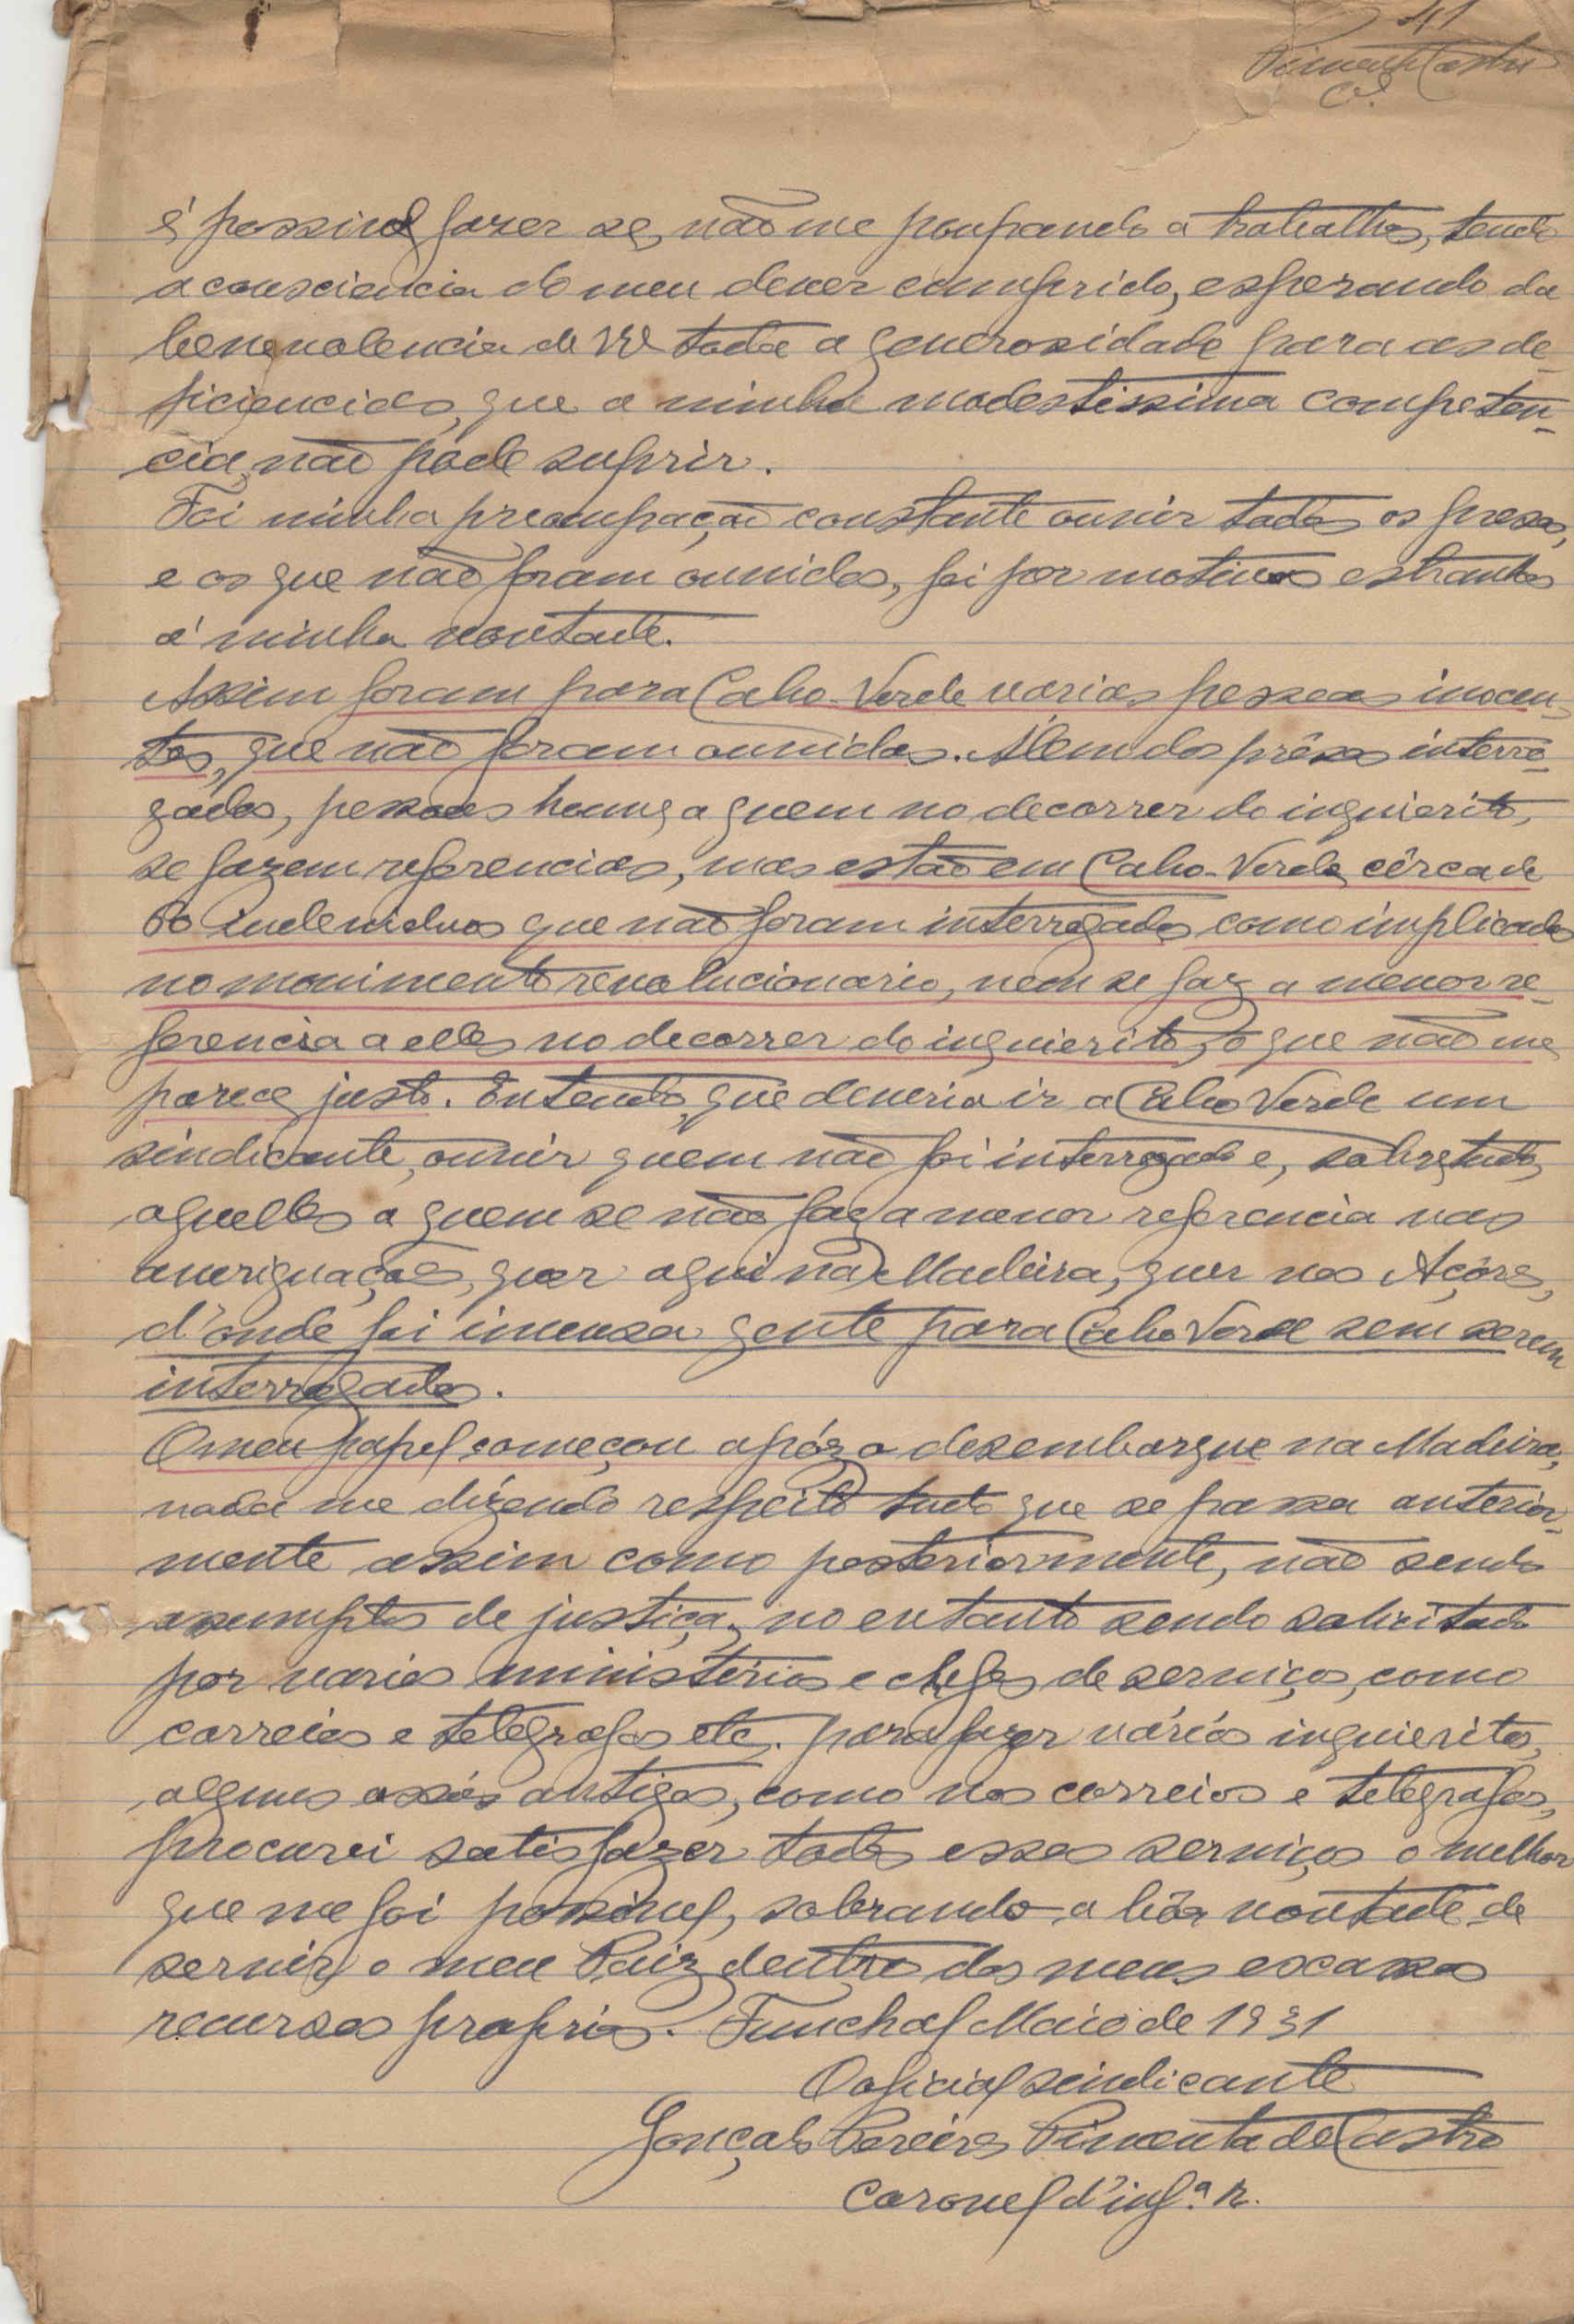 41
Pimenta Castro
Cel.
é possivel fazer se, não me poupando a trabalhos, tendo
a consciencia do meu dever cumprido, esperando da
benevolencia de V.E. toda a generosidade para as de-
ficiencias, que a minha modestissima competen-
cia, não pode suprir.
Foi minha preocupação constante ouvir todos os presos,
e os que não foram ouvidos, foi por motivos estranhos
á minha vontade.
Assim foram para Cabo-Verde varias pessoas inocen-
tes, que não foram ouvidas. Alem dos prêsos interro-
gados, pessoas houve, a quem no decorrer do inquierito,
se fazem referencias, mas estão em Cabo-Verde, cêrca de
60 individuos que não foram interrogados como implicados
no movimento revolucionario, nem se faz a menor re-
ferencia a elles no decorrer do inquierito, o que não me
parece justo. Entendo, que deveria ir a Cabo Verde um
sindicante, ouvir quem não foi interrogado e, sobretudo,
aquelles a quem se não faça menor referencia nas
averiguações, quer aqui na Madeira, quer nos Açôres,
d'onde foi imensa gente para Cabo Verde sem serem
interrogados.
O meu papel começou após o desembarque na Madeira,
nada me dizendo respeito tudo que se passa anterior-
mente assim como posteriormente, não sendo
assumptos de justiça, no entanto sendo solicitado
por varios ministérios e chefes de serviços, como
correios e telegrafos etc. para fazer vários inquieritos,
alguns assás antigos, como nos correios e telegrafos,
procurei satisfazer todos esses serviços o melhor
que me foi possivel, sobrando a bôa vontade de
servir o meu Paiz dentro dos meus escassos
recursos proprios. Funchal Maio de 1931
O oficial sindicante
Gonçalo Pereira Pimenta de Castro
Coronel d'infª R.